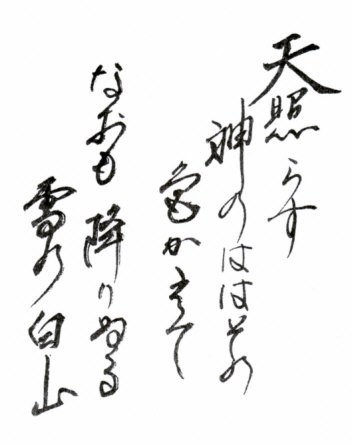 天照らす
神のははその
色かえて
なおも降りぬる
雪の白山